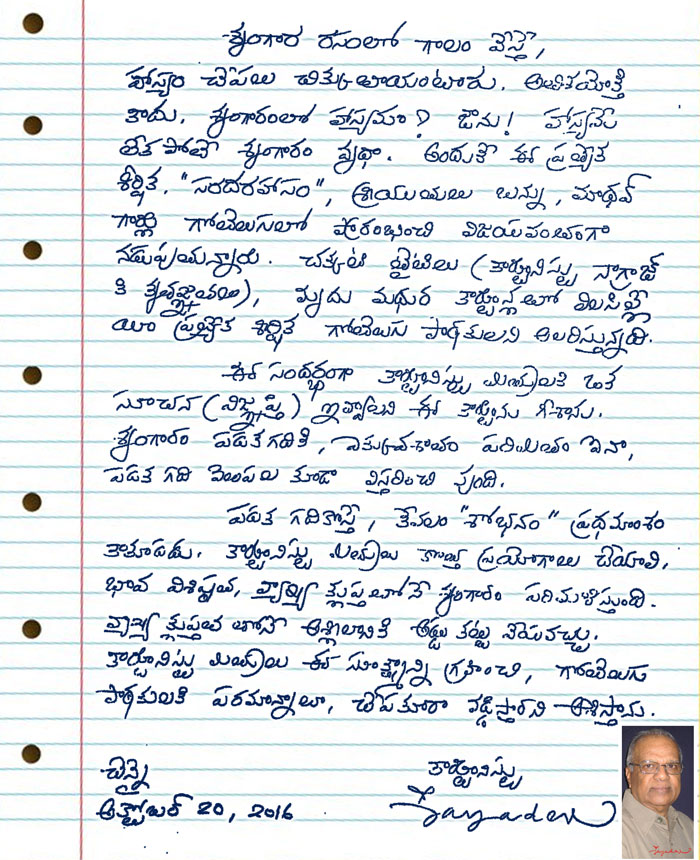 శృంగార రసంలో గాలం వేస్తే,
హాస్యం చేపలు చిక్కుతాయంటారు. అతిశయోక్తి
కాదు. శృంగారంలో హాస్యమా? ఔను! హాస్యమే
లేక పోతే శృంగారం వృథా. అందుకే ఈ ప్రత్యేక
శీర్షిక. "సరదరహాసం", శ్రీయుతులు బన్ను, మాధవ్
గార్లు గోతెలుగులో ప్రారంభించి విజయవంతంగా
నడుపుతున్నారు. చక్కటి టైటిలు (కార్టూనిస్టు నాగ్రాజ్
కి కృతజ్ఞతలు), మృదు మధుర కార్టూన్లతో విలసిల్లే
యీ ప్రత్యేక శీర్షిక గోతెలుగు పాఠకులని అలరిస్తున్నది.
ఈ సందర్భంగా కార్టూనిస్టు మిత్రులకి ఒక
సూచన (విజ్ఞప్తి) ఇవ్వాలని ఈ కార్టూను గీశాను.
శృంగారం పడకగదికి, ఎక్కువశాతం పరిమితం ఐనా,
పడక గది వెలుపల కూడా విస్తరించి వుంది.
పడక గదికొస్తే, కేవలం "శోభనం" ప్రధమాంశం
కాకూడదు. కార్టూనిస్టు మిత్రులు కొత్త ప్రయోగాలు చేయాలి.
భావ విశిష్టత, వ్యాఖ్య క్లుప్తతలోనే శృంగారం పరిమళిస్తుంది.
వ్యాఖ్య క్లుప్తత తోనే అశ్లీలానికి అడ్డు కట్ట వేయవచ్చు.
కార్టూనిస్టు మిత్రులు ఈ సూత్రాన్ని గ్రహించి, గోతెలుగు
పాఠకులకి పరమాన్నాలూ, చేపకూరా వడ్డిస్తారని ఆశిస్తాను.
చెన్నై
అక్టోబర్ 20, 2016
కార్టూనిస్టు
Jayadev
Jayadev